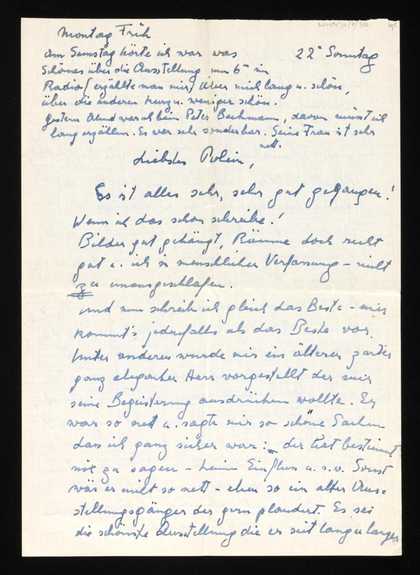 Montag Früh
Am Samstag hörte ich war was
22° Sonntag
Schönes über die Ausstellung um 6h im
Radio (erzählte man mir) über mich lang u. schön,
über die anderen kurz u. weniger schön.
Gestern Abend war ich beim Peter Bachmann, davon
lang erzählen. Es war sehr sonderbar. Seine Frau ist sehr
nett.
Liebster Polein,
Es ist alles sehr, sehr gut gegangen!
Wenn ich das schon schreibe!
Bilder gut gehängt, Räume doch recht
gut u. ich in menschlicher Verfassung – nicht
zu unausgeschlafen.
Und nun schreib ich gleich das Beste – mir
kommt's jedenfalls als das Beste vor.
Unter anderem wurde mir ein älterer zarter
ganz eleganter Herr vorgestellt der mir
seine Begeisterung ausdrücken wollte. Er
war so nett u. sagte mir so schöne Sachen
dass ich ganz sicher war: der hat bestimmt
nix zu sagen – keinen Einfluss u.s.w. Sonst
wär er nicht so nett – eben so ein alter Aus-
stellungsgänger der gern plaudert. Es sei
die schönste Ausstellung die er seit langer langer